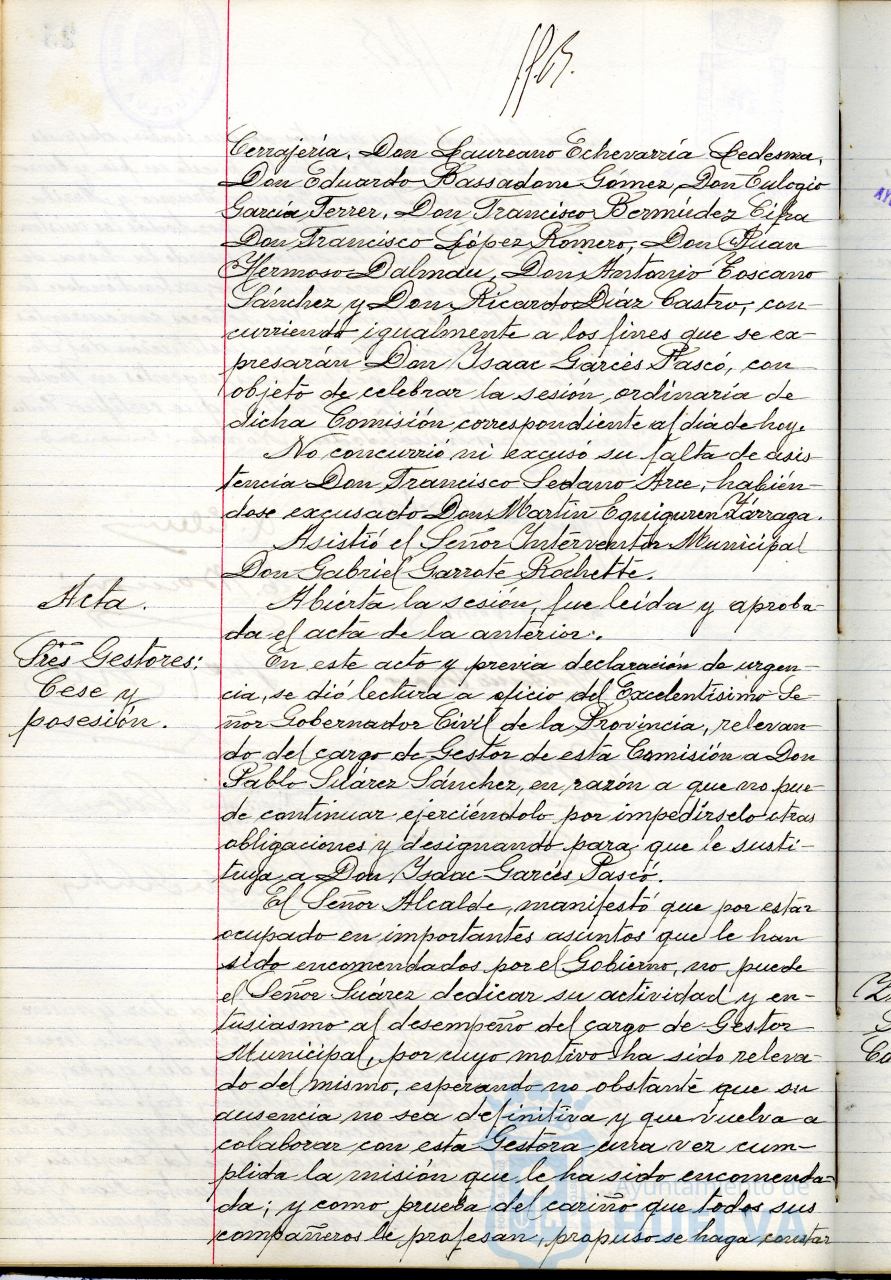 Cerrajería, Don Laureano Echevarría Ledesma,
Don Eduardo Bassadone Gómez, Don Eulogio
García Ferrer, Don Francisco Bermúdez Cifra
Don Francisco López Romero, Don Juan
Hermoso Dalmau, Don Antonio Toscano
Sánchez y Don Ricardo Díaz Castro, con-
curriendo igualmente a los fines que se ex-
presarán Don Isaac Garcés Pascó, con
objeto de celebrar la sesión, ordinaria de
dicha Comisión correspondiente al día de hoy.
No concurrió ni excusó su falta de asis-
tencia Don Francisco Sedano Arce, habién-
dose excusado Don Martín Eguiguren Zárraga.
Asistió el Señor Interventor Municipal
Don Gabriel Garrote Rochette.
Acta.
Abierta la sesión, fue leída y aproba-
da el acta de la anterior.
Sres Gestores:
Cese y
posesión.
En este acto y previa declaración de urgen-
cia, se dió lectura a oficio del Excelentísimo Se-
ñor Gobernador Civil de la Provincia, relevan-
do del cargo de Gestor de esta Comisión a Don
Pablo Suárez Sánchez, en razón a que no pue-
de continuar ejerciéndolo por impedírselo otras
obligaciones y designando para que le susti-
tuya a Don Isaac Garcés Pascó.
El Señor Alcalde, manifestó que por estar
ocupado en importantes asuntos que le han
sido encomendados por el Gobierno, no puede
el Señor Suárez dedicar su actividad y en-
tusiasmo al desempeño del cargo de Gestor
Municipal, por cuyo motivo ha sido releva-
do del mismo, esperando no obstante que su
ausencia no sea definitiva y que vuelva a
colaborar con esta Gestora una vez cum-
plida la misión que le ha sido encomenda-
da; y como prueba del cariño que todos sus
compañeros le profesan, propuso se haga constar
Ayuntamiento de
HUELVA